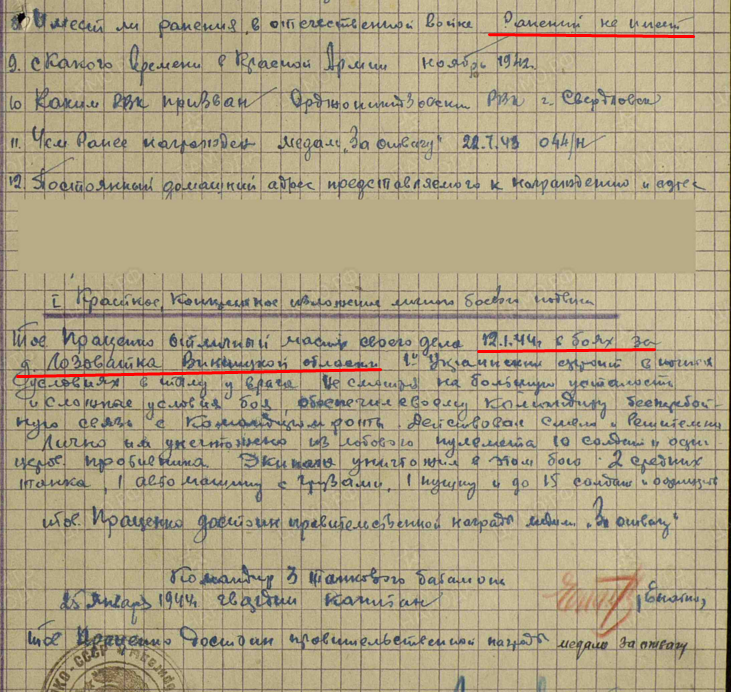 8. Имеет ли ранения, в отечественной войне Ранений не имеет
9. С какого времени в Красной Армии ноябрь 1942г.
10 Каким РВК призван Орджоникидзевским РВК г. Свердловска
11. Чем ранее награжден медаль "За отвагу" 22.7.43 044/н
12. Постоянный домашний адрес представляемого к награждению и адрес
I Краткое, конкретное изложение личного боевого подвига
Тов Праценко отличный мастер своего дела 12.1.44г. в боях за
д. Лозоватка Виницкой области 1й Украинский фронт в ночных
условиях в тылу у врага не смотря на большую усталость
и сложные условия боя, обеспечил своему командиру бесперебой-
ную связь с командиром роты. Действовал смело и решительно
Лично им уничтожено из лобового пулемета 10 солдат и один
офицер противника. Экипаж уничтожил в этом бою: 2 средних
танка, 1 автомашину с грузами, 1 пушку и до 15 солдат и офицеров
тов. Праценко достоин правительственной награды медали "За отвагу"
Командир 3 танкового батальона
25 января 1944г гвардии капитан
Тов Праценко достоин правительственной награды медаль За отвагу